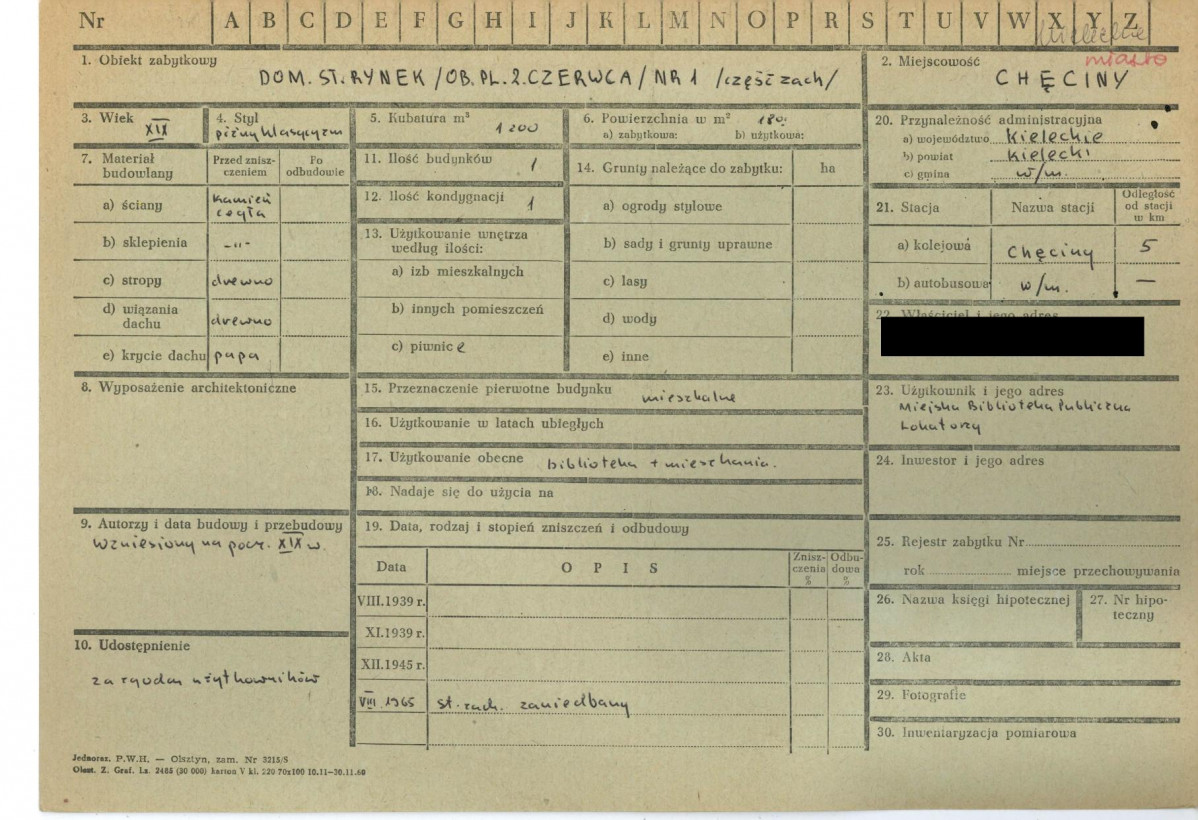 Nr A B C D E F G H I J K L M N O P R S T U V W X Y Z
Kieleckie
miasto
1. Obiekt zabytkowy
DOM. ST. RYNEK /OB. PL. 2. CZERWCA/ NR 1 /część zach/
2. Miejscowość
CHĘCINY
3. Wiek
XIX
4. Styl
późny klasycyzm
5. Kubatura m³
1200
6. Powierzchnia w m² 180.
a) zabytkowa: b) użytkowa:
7. Materiał budowlany
Przed zniszczeniem
Po odbudowie
a) ściany kamień cegła
b) sklepienia -"-
c) stropy drewno
d) wiązania dachu drewno
e) krycie dachu papa
8. Wyposażenie architektoniczne
9. Autorzy i data budowy i przebudowy
Wzniesiony na pocz. XIX w.
10. Udostępnienie
za zgodą użytkowników
11. Ilość budynków 1
12. Ilość kondygnacji 1
13. Użytkowanie wnętrza
według ilości:
a) izb mieszkalnych
b) innych pomieszczeń
c) piwnic
14. Grunty należące do zabytku: ha
a) ogrody stylowe
b) sady i grunty uprawne
c) lasy
d) wody
e) inne
15. Przeznaczenie pierwotne budynku mieszkalne
16. Użytkowanie w latach ubiegłych
17. Użytkowanie obecne biblioteka + mieszkania.
18. Nadaje się do użycia na
19. Data, rodzaj i stopień zniszczeń i odbudowy
Data OPIS Zniszczenia % Odbudowa %
VIII.1939 r.
XI.1939 r.
XII.1945 r.
VIII 1965 st. zach. zaniedbany
20. Przynależność administracyjna
a) województwo Kieleckie
b) powiat kielecki
c) gmina w/m.
21. Stacja Nazwa stacji Odległość od stacji w km
a) kolejowa Chęciny 5
b) autobusowa w/m. —
22. Właściciel i jego adres
23. Użytkownik i jego adres
Miejska Biblioteka Publiczna
Lokatorzy
24. Inwestor i jego adres
25. Rejestr zabytku Nr
rok miejsce przechowywania
26. Nazwa księgi hipotecznej
27. Nr hipoteczny
28. Akta
29. Fotografie
30. Inwentaryzacja pomiarowa
Jednoraz. P.W.H. — Olsztyn, zam. Nr 3215/S
Olszt. Z. Graf. Lz. 2485 (30 000) karton V kl. 220 70x100 10.11—30.11.60